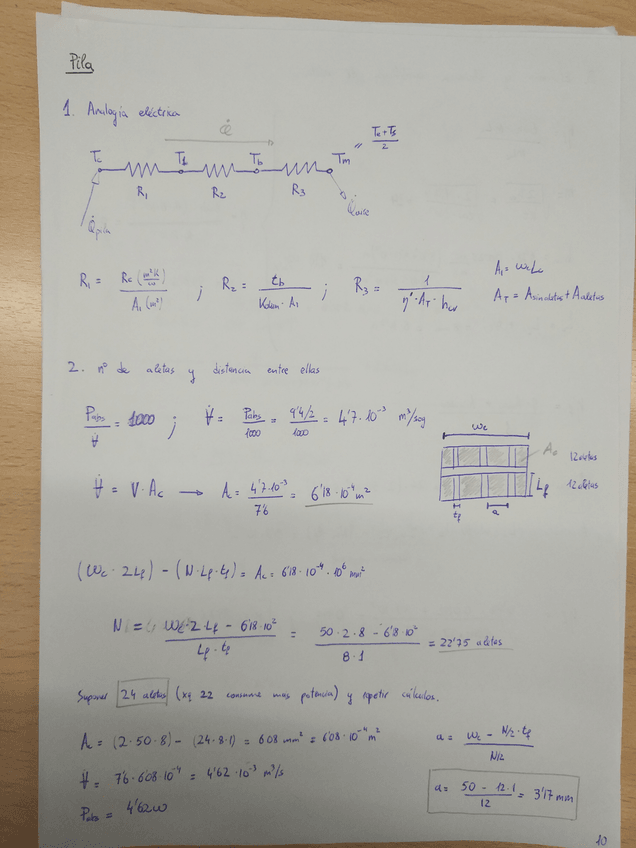 Pila
1. Analogía eléctrica
Q̇
Tc T1 Tb Tm = (Te + Ts)/2
R1 R2 R3
Q̇pila Q̇aire
R1 = Rc (m²K/w) / A1 (m²) ; R2 = tb / (Kdum · A1) ; R3 = 1 / (η° · AT · hw)
A1 = wc Lc
AT = Asin aletas + Aaletas
2. nº de aletas y distancia entre ellas
Pabs/V̇ = 1000 ; V̇ = Pabs/1000 = (9'4/2)/1000 = 4'7·10⁻³ m³/seg
wc
Ac
12 aletas
12 aletas
Lf
tf a
V̇ = V · Ac → Ac = 4'7·10⁻³ / 7'6 = 6'18·10⁻⁴ m²
(wc · 2Lf) − (N · Lf · tf) = Ac = 6'18·10⁻⁴ · 10⁶ mm²
N = (wc 2 Lf − 6'18·10²) / (Lf · tf) = (50·2·8 − 6'18·10²) / (8·1) = 22'75 aletas
Suponer 24 aletas (xq 22 consume mas potencia) y repetir cálculos.
Ac = (2·50·8) − (24·8·1) = 608 mm² = 6'08·10⁻⁴ m²
a = (wc − N/2 · tf) / (N/2)
V̇ = 7'6 · 6'08·10⁻⁴ = 4'62·10⁻³ m³/s
a = (50 − 12·1) / 12 = 3'17 mm
Pabs = 4'62 w
10